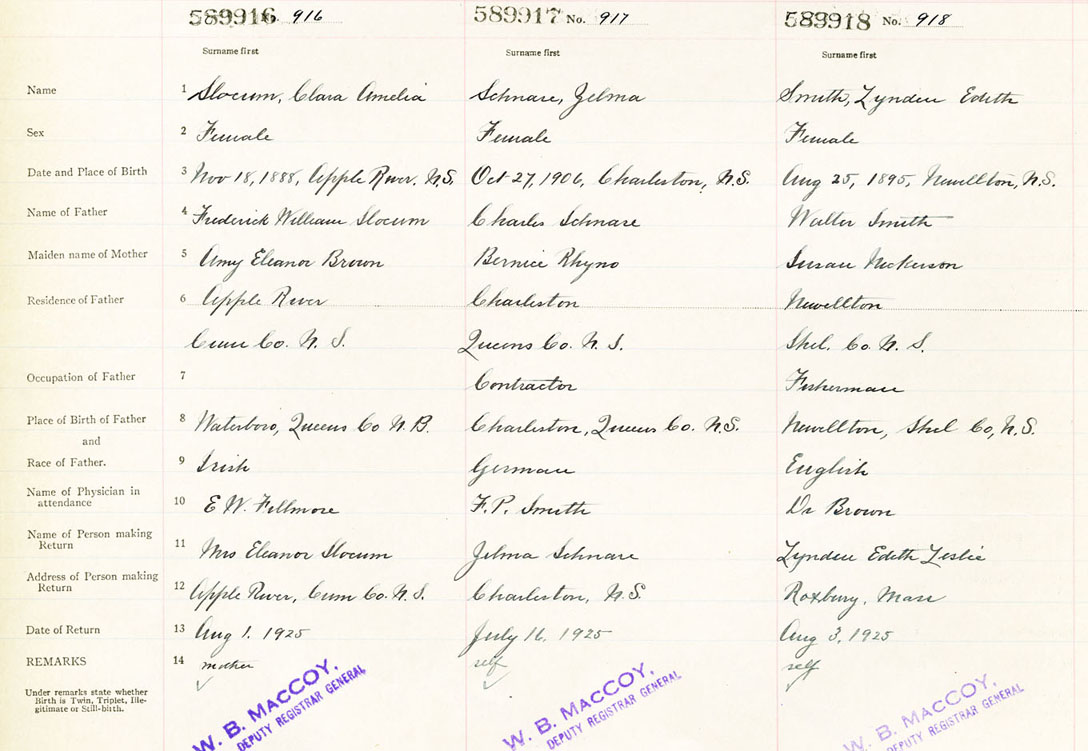 589916 No. 916 589917 No. 917 589918 No. 918
Surname first Surname first Surname first
Name 1 Slocum, Clara Amelia Schnare, Zelma Smith, Lynden Edith
Sex 2 Female Female Female
Date and Place of Birth 3 Nov 18, 1888, Apple River, N.S. Oct 27, 1906, Charleston, N.S. Aug 25, 1895, Newellton, N.S.
Name of Father 4 Frederick William Slocum Charles Schnare Walter Smith
Maiden name of Mother 5 Amy Eleanor Brown Bernice Rhyno Susan Nickerson
Residence of Father 6 Apple River Charleston Newellton
Cum Co. N. S. Queens Co. N. S. Shel. Co. N. S.
Occupation of Father 7 Contractor Fisherman
Place of Birth of Father 8 Waterboro, Queens Co N.B. Charleston, Queens Co. N.S. Newellton, Shel Co, N.S.
and
Race of Father. 9 Irish German English
Name of Physician in
attendance 10 E W. Fillmore F.P. Smith Dr Brown
Name of Person making
Return 11 Mrs Eleanor Slocum Zelma Schnare Lynden Edith Leslie
Address of Person making
Return 12 Apple River, Cum Co. N. S. Charleston, N.S. Roxbury, Mass
Date of Return 13 Aug 1. 1925 July 16, 1925 Aug 3, 1925
REMARKS 14 mother self self
Under remarks state whether
Birth is Twin, Triplet, Ille-
gitimate or Still-birth.
W. B. MACCOY,
DEPUTY REGISTRAR GENERAL
W. B. MACCOY,
DEPUTY REGISTRAR GENERAL
W. B. MACCOY,
DEPUTY REGISTRAR GENERAL